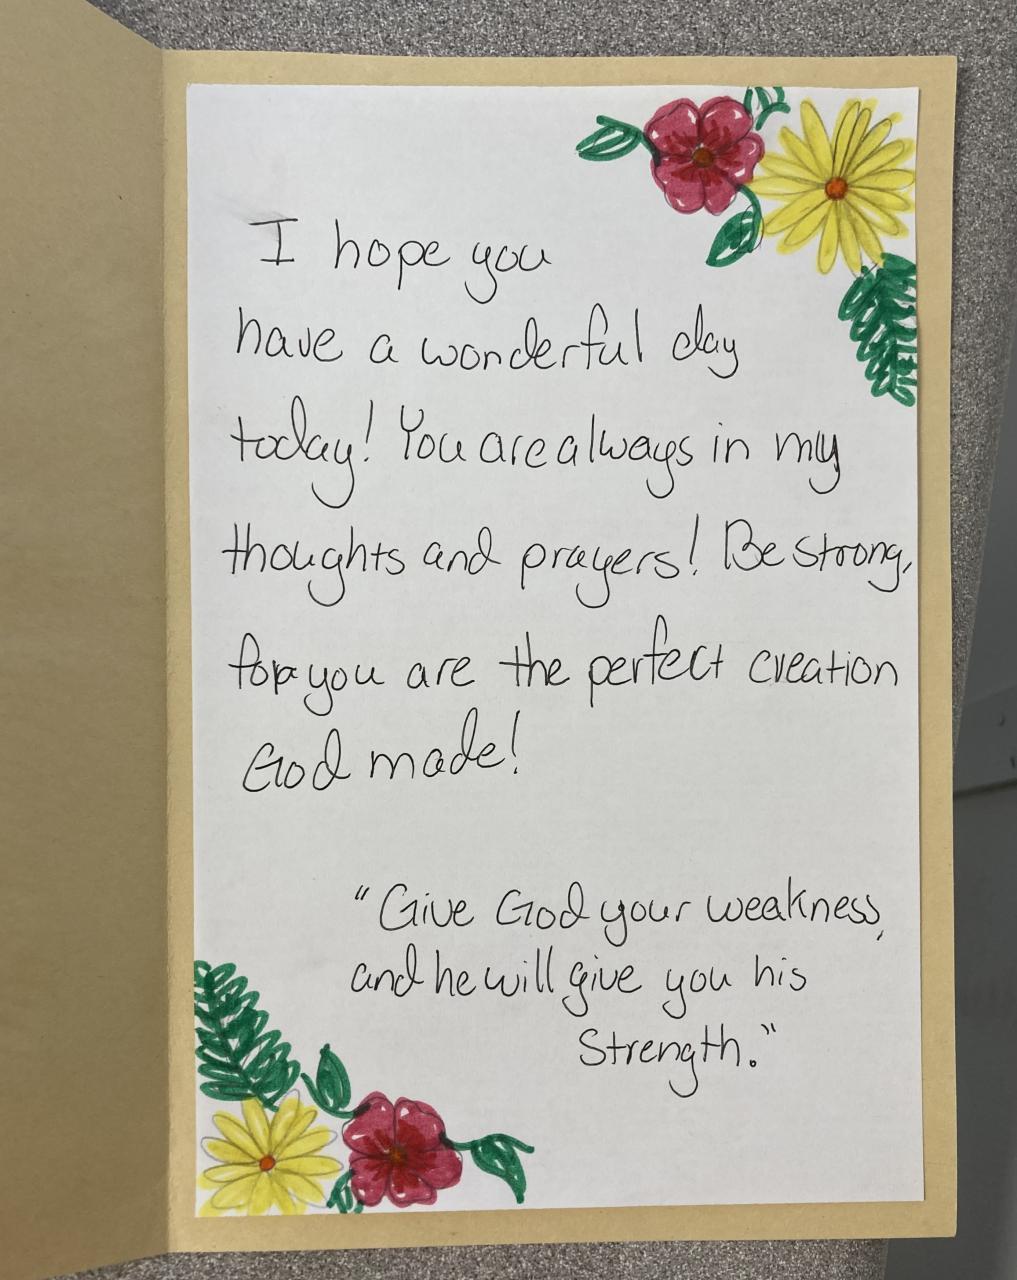 I hope you
have a wonderful day
today! You are always in my
thoughts and prayers! Be strong,
for you are the perfect creation
God made!
"Give God your weakness,
and he will give you his
Strength."